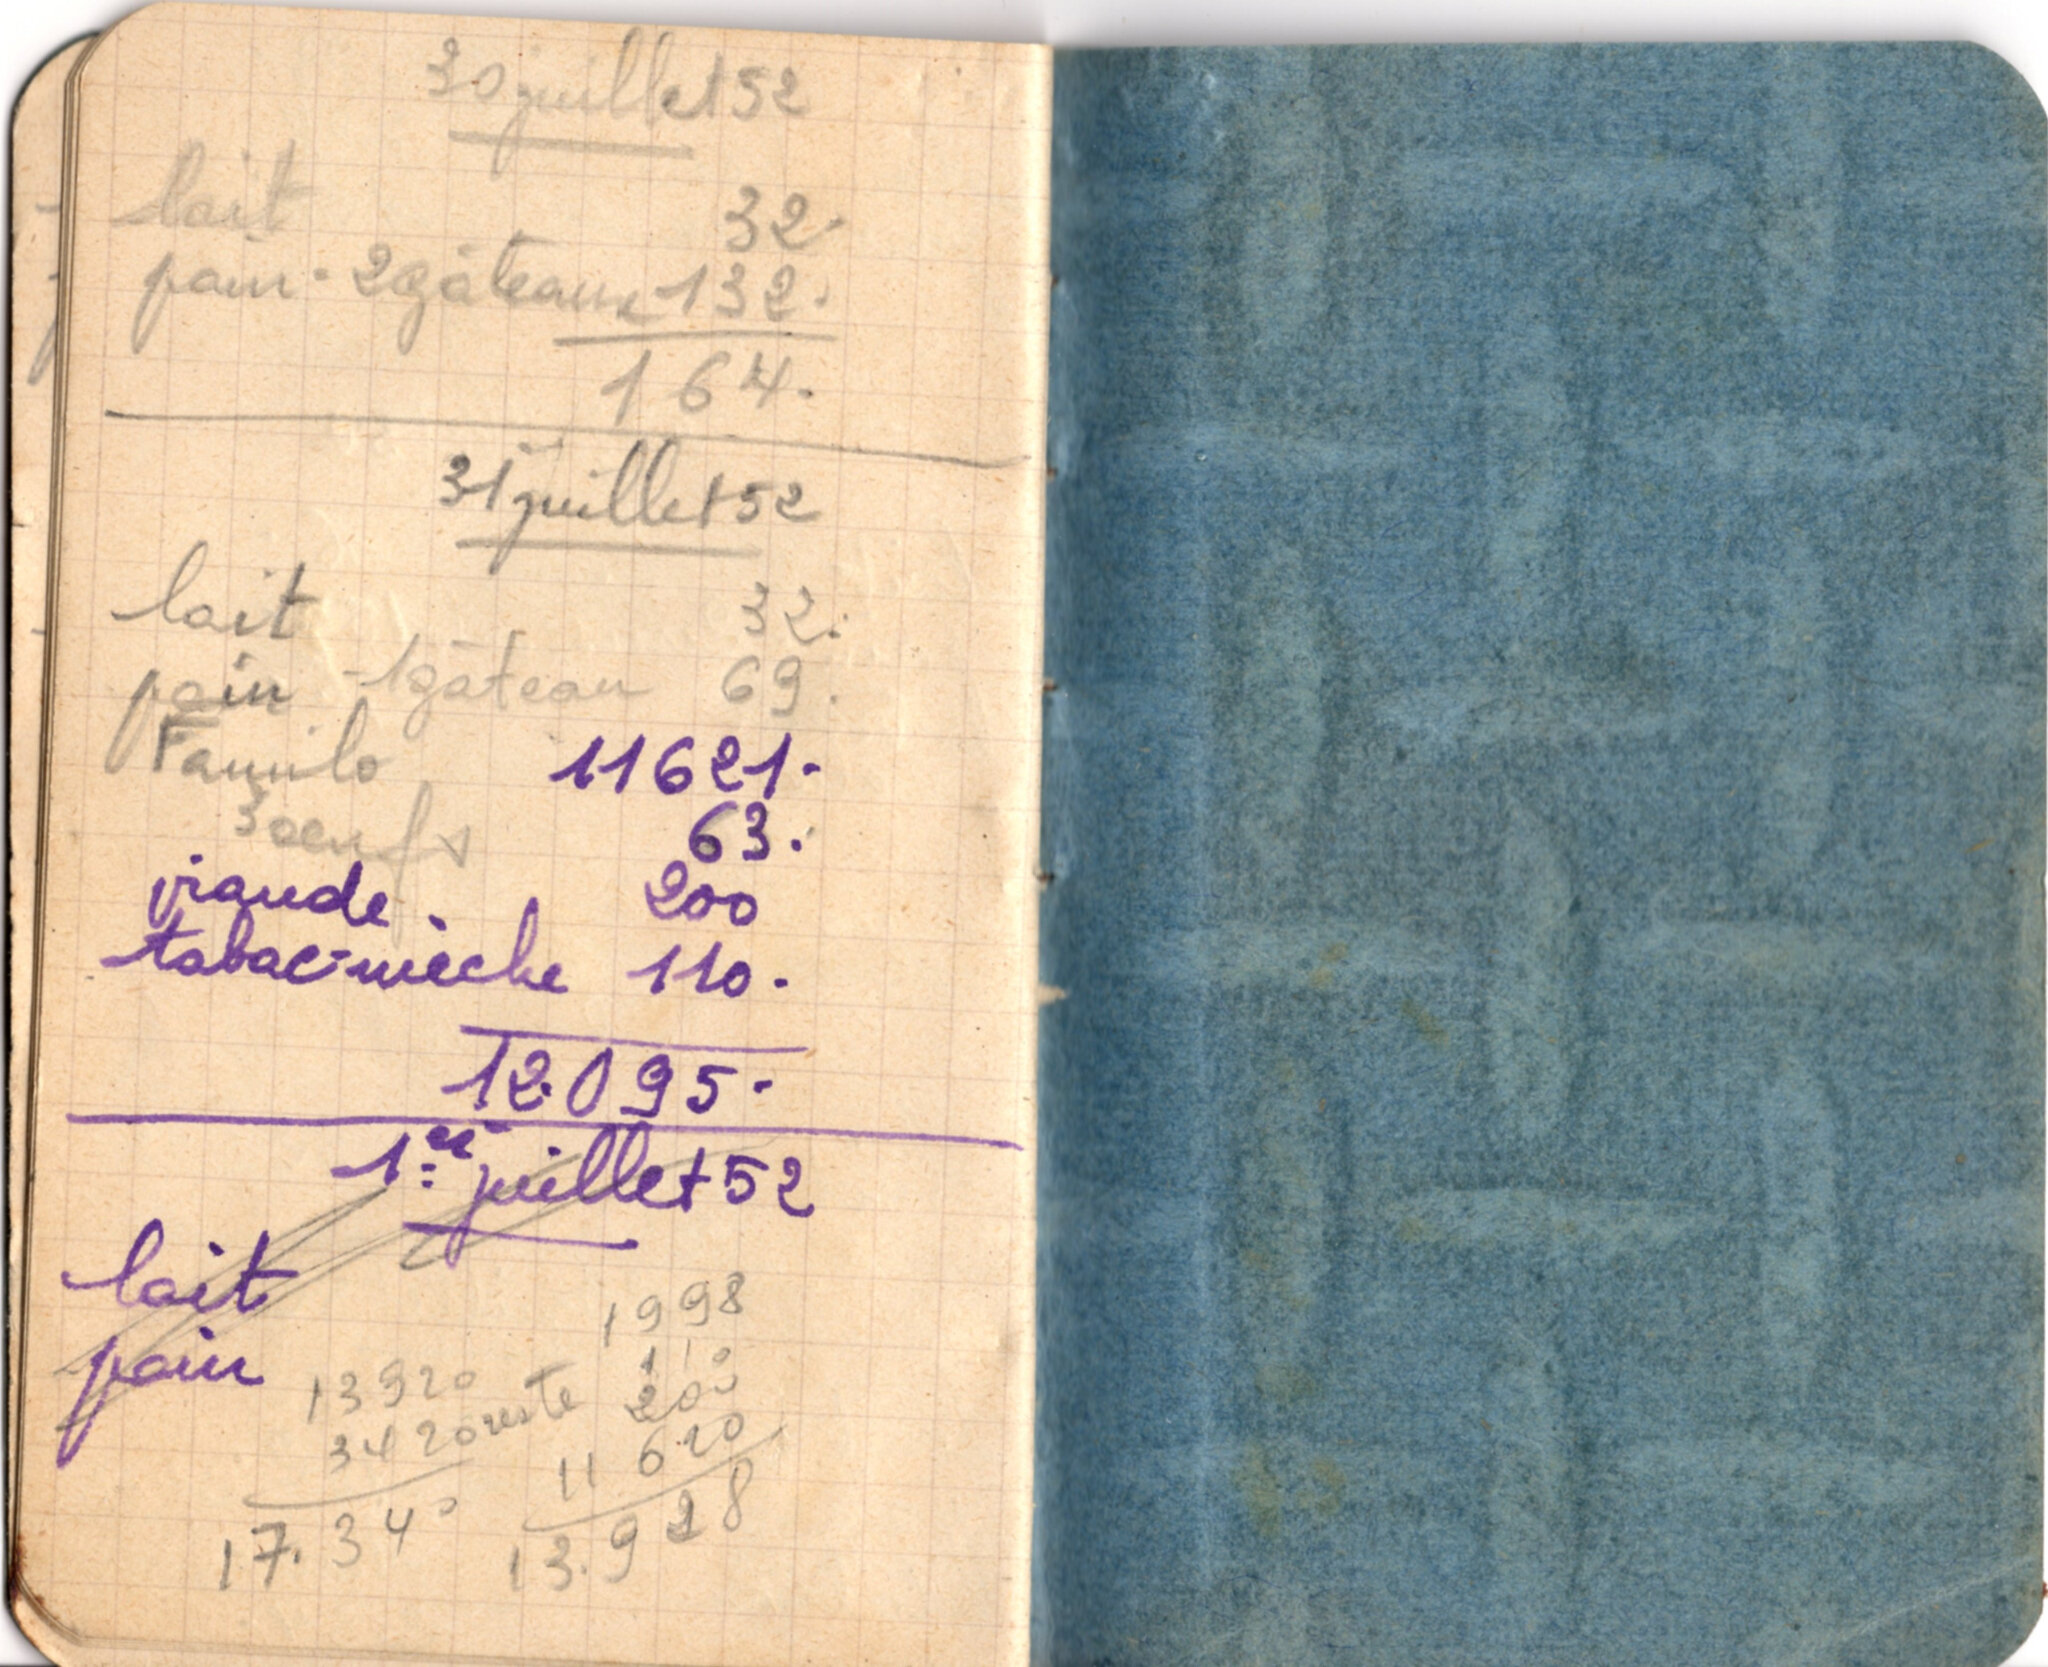 30 juillet 52
lait 32.
pain - 2 gâteaux 132.
164.
31 juillet 52
lait 32.
pain - 1 gâteau 69.
Familo 11621.
3 oeufs 63.
viande. 200
tabac-mèche 110.
12.095.
1er juillet 52
lait
pain
1998
110
200
11620
13.928
13920
3420 reste
17.340